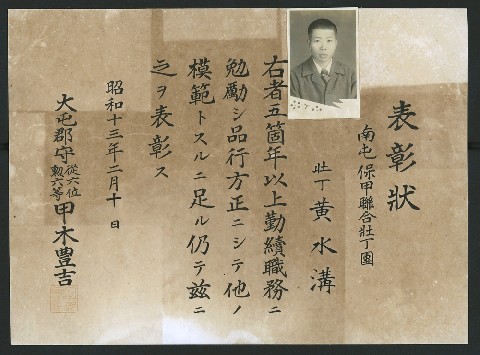 表彰狀
南屯保甲聯合壯丁團
壯丁 黃水溝
右者五箇年以上勤續職務ニ
勉勵シ品行方正ニシテ他ノ
模範トスルニ足ル仍テ茲ニ
之ヲ表彰ス
昭和十三年二月十一日
大屯郡守 從六位 勳六等 甲木豊吉